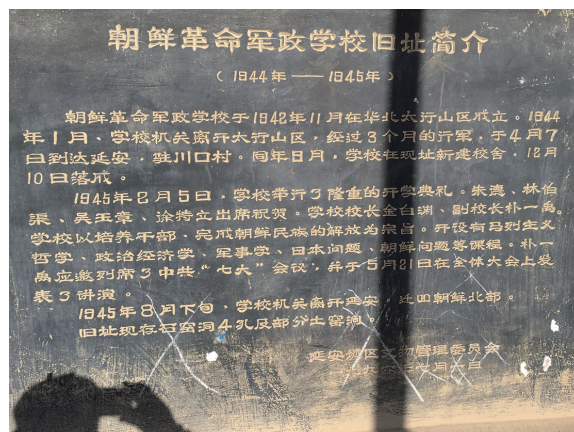 朝鲜革命军政学校旧址简介
（1944年——1945年）
朝鲜革命军政学校于1942年11月在华北太行山区成立。1944
年1月，学校机关离开太行山区，经过3个月的行军，于4月7
日到达延安，驻川口村。同年9月，学校在现址新建校舍，12月
10日落成。
1945年2月5日，学校举行了隆重的开学典礼。朱德、林伯
渠、吴玉章、徐特立出席祝贺。学校校长金白渊、副校长朴一禹。
学校以培养干部、完成朝鲜民族的解放为宗旨。开设有马列主义
哲学、政治经济学、军事学、日本问题、朝鲜问题等课程。朴一
禹应邀列席了中共“七大”会议，并于5月21日在全体大会上发
表了讲演。
1945年8月下旬，学校机关离开延安，迁回朝鲜北部。
旧址现存石窑洞4孔及部分土窑洞。
延安地区文物管理委员会